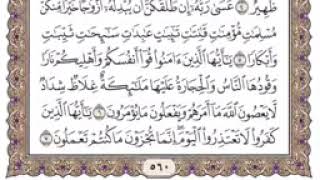 ظَهِيرٌ ٤ عَسَىٰ رَبُّهُۥٓ إِن طَلَّقَكُنَّ أَن يُبْدِلَهُۥٓ أَزْوَٰجًا خَيْرًا مِّنكُنَّ
مُسْلِمَٰتٍ مُّؤْمِنَٰتٍ قَٰنِتَٰتٍ تَٰٓئِبَٰتٍ عَٰبِدَٰتٍ سَٰٓئِحَٰتٍ ثَيِّبَٰتٍ
وَأَبْكَارًا ٥ يَٰٓأَيُّهَا ٱلَّذِينَ ءَامَنُوا۟ قُوٓا۟ أَنفُسَكُمْ وَأَهْلِيكُمْ نَارًا
وَقُودُهَا ٱلنَّاسُ وَٱلْحِجَارَةُ عَلَيْهَا مَلَٰٓئِكَةٌ غِلَاظٌ شِدَادٌ
لَّا يَعْصُونَ ٱللَّهَ مَآ أَمَرَهُمْ وَيَفْعَلُونَ مَا يُؤْمَرُونَ ٦ يَٰٓأَيُّهَا ٱلَّذِينَ
كَفَرُوا۟ لَا تَعْتَذِرُوا۟ ٱلْيَوْمَ إِنَّمَا تُجْزَوْنَ مَا كُنتُمْ تَعْمَلُونَ ٧
٥٦٠